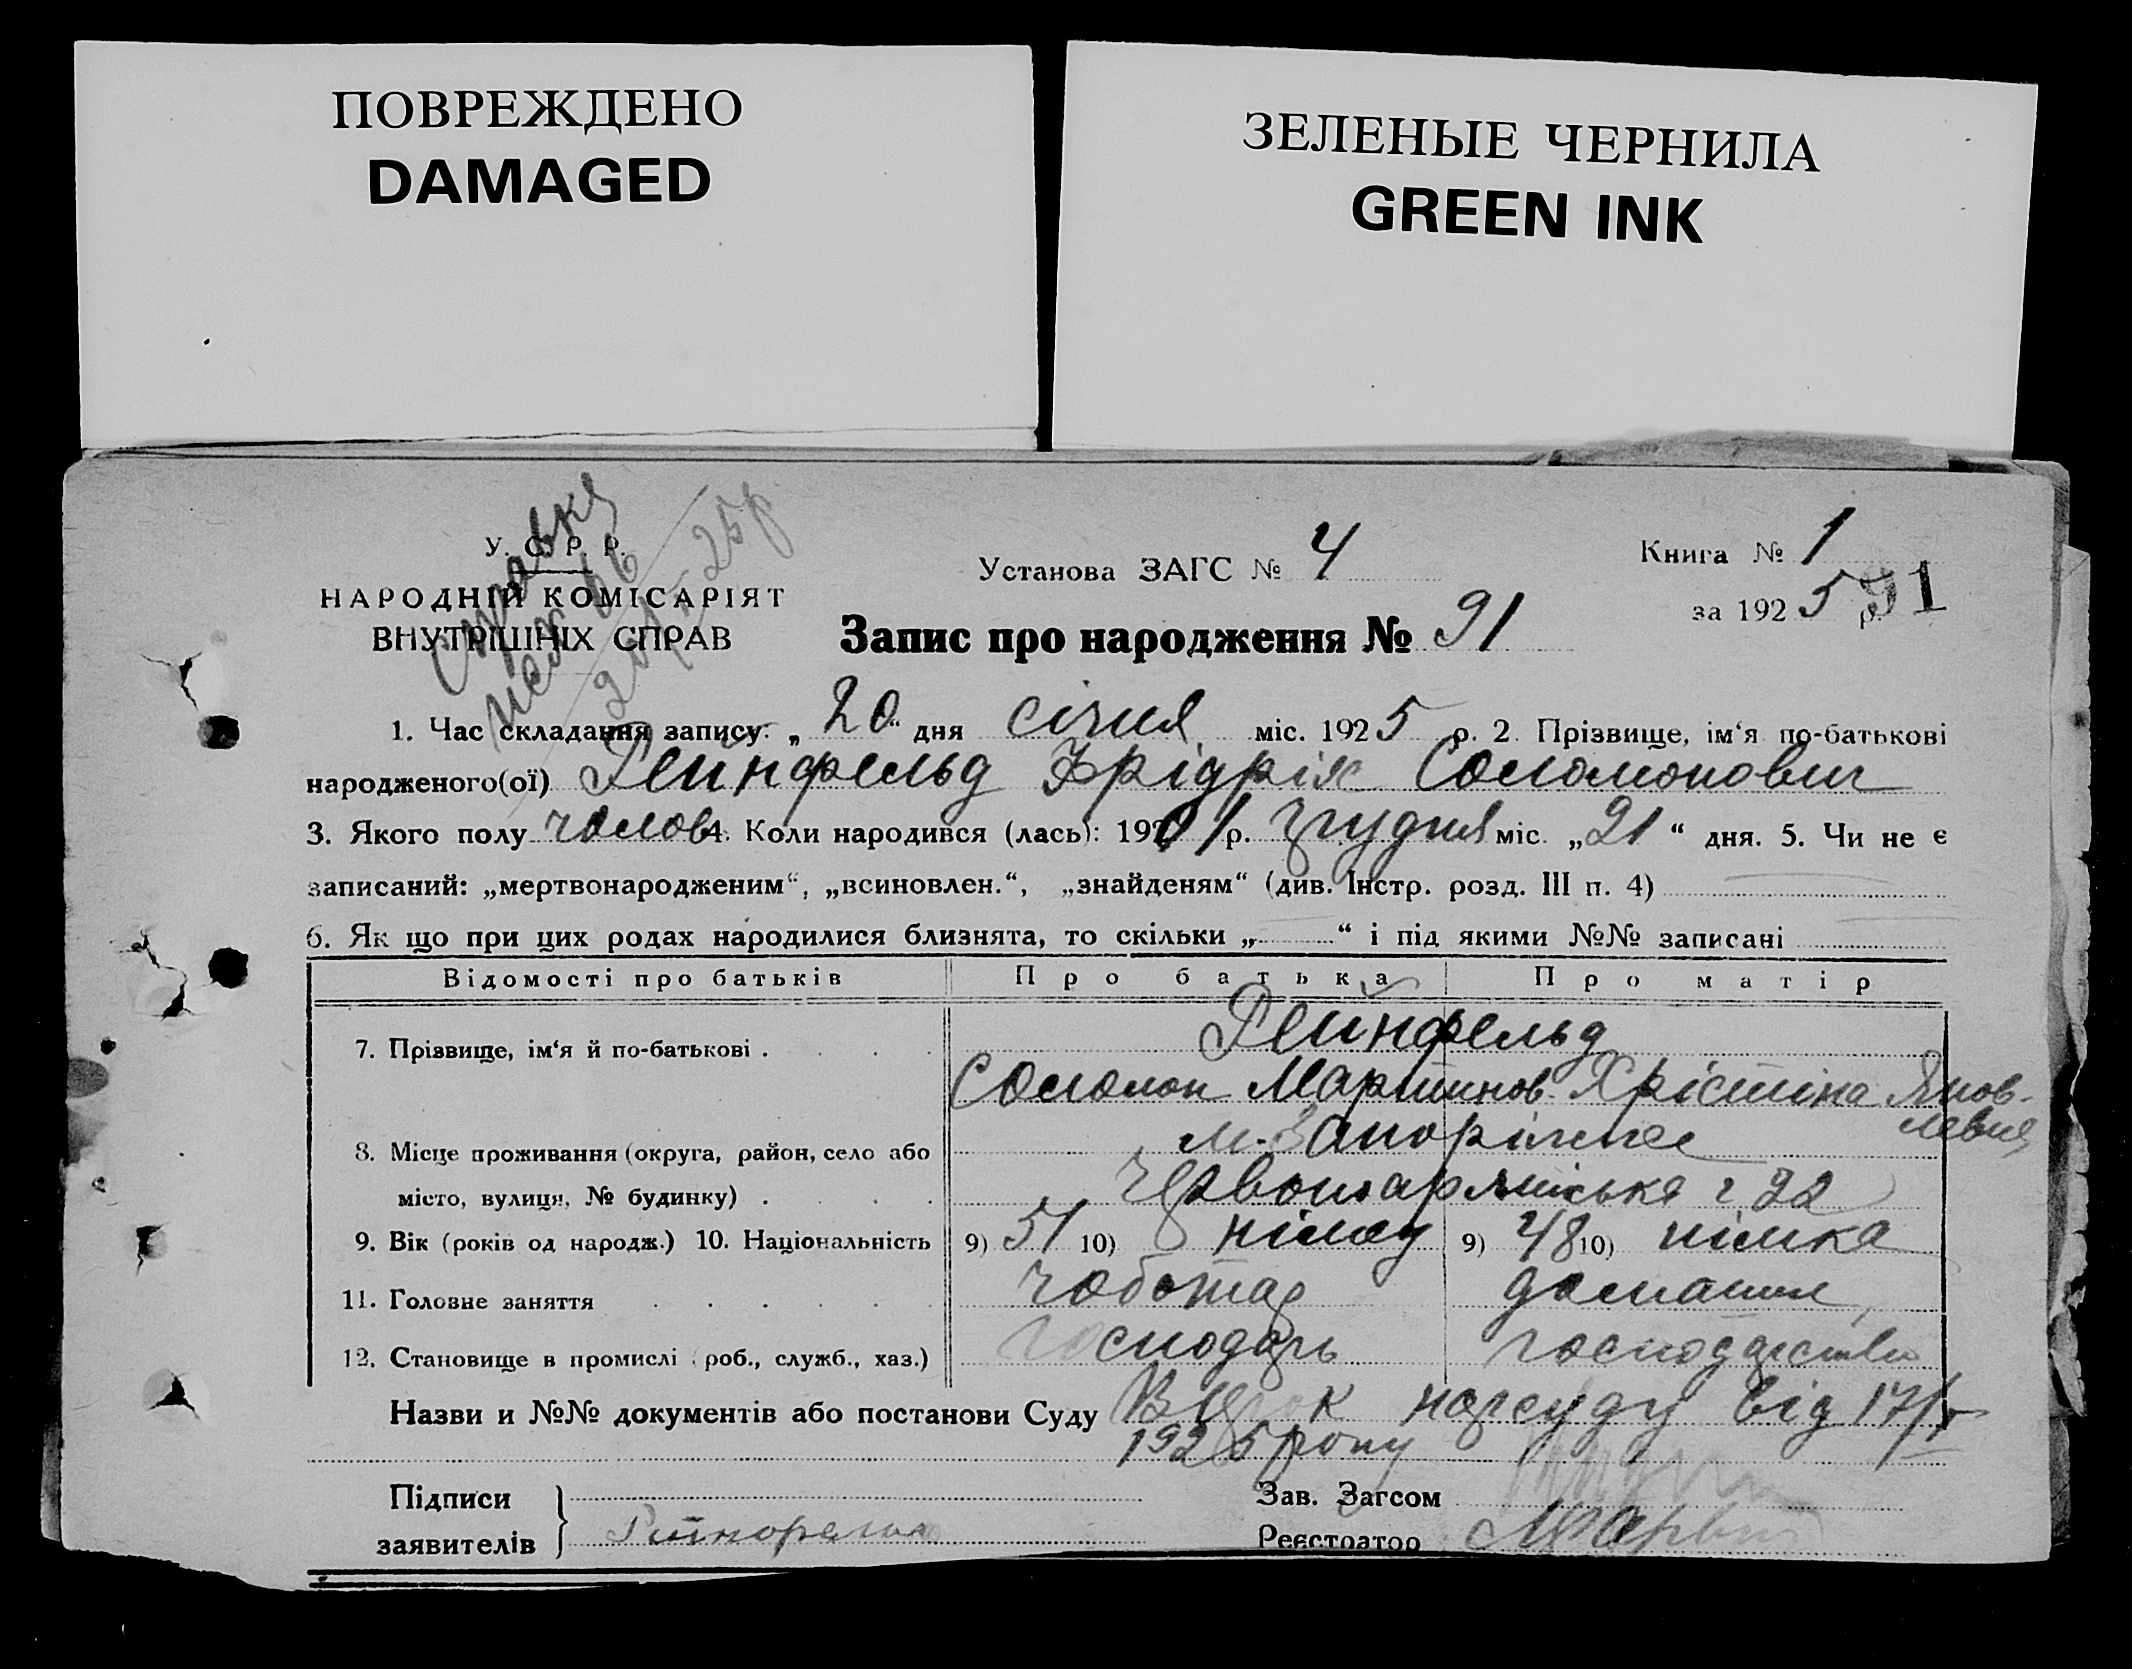 ПОВРЕЖДЕНО
DAMAGED
ЗЕЛЕНЫЕ ЧЕРНИЛА
GREEN INK
У. С. Р. Р.
НАРОДНІЙ КОМІСАРІЯТ
ВНУТРІШНІХ СПРАВ
Справка
25р.
Установа ЗАГС № 4
Книга № 1
за 1925 р.
91
Запис про народження № 91
1. Час складання запису: „20“ дня січня міс. 1925 р. 2. Прізвище, ім‘я по-батькові
народженого(ої) Рейнфельд Фрідріх Соломонович
3. Якого полу чолов. 4. Коли народився (лась): 1901 р. грудня міс. „21“ дня. 5. Чи не є
записаний: „мертвонародженим“, „всиновлен.“, „знайденям“ (див. Інстр. розд. III п. 4)
6. Як що при цих родах народилися близнята, то скільки „ “ і під якими №№ записані
Відомості про батьків Про батька Про матір
7. Прізвище, ім‘я й по-батькові . . . . Рейнфельд
Соломон Мартинов. Хрістіна Яковлевна
8. Місце проживання (округа, район, село або м. Запоріжжє
місто, вулиця, № будинку) . . . . Червоноармійська 22
9. Вік (років од народж.) 10. Національність 9) 51 10) німец 9) 48 10) німка
11. Головне заняття . . . . . . чоботар домашнє
12. Становище в промислі (роб., служб., хаз.) господарь господарство
Назви и №№ документів або постанови Суду Вирок нарсуду від 17/I
1925 року
Підписи
заявителів
Зав. Загсом
Реєстратор